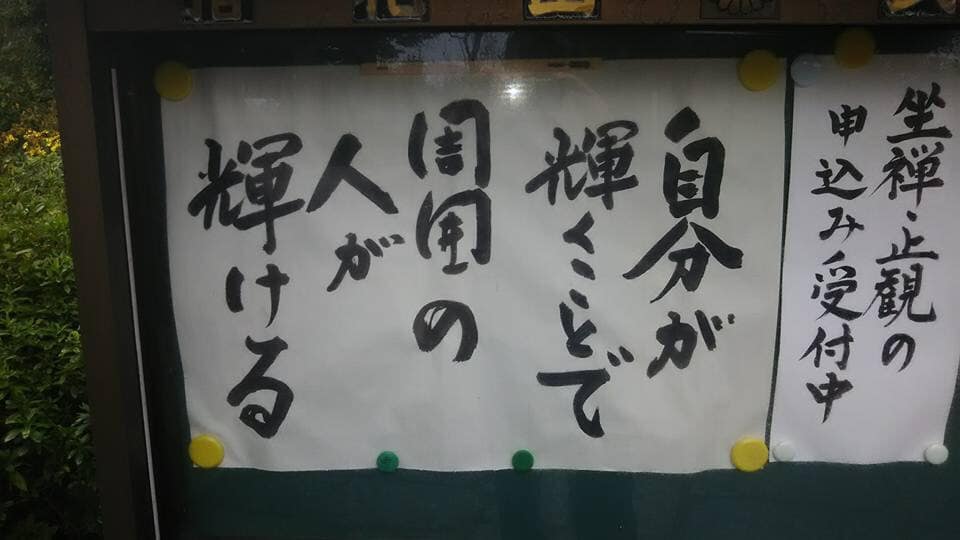 自分が
輝くことで
周囲の
人が
輝ける
坐禅・止観の
申込み受付中